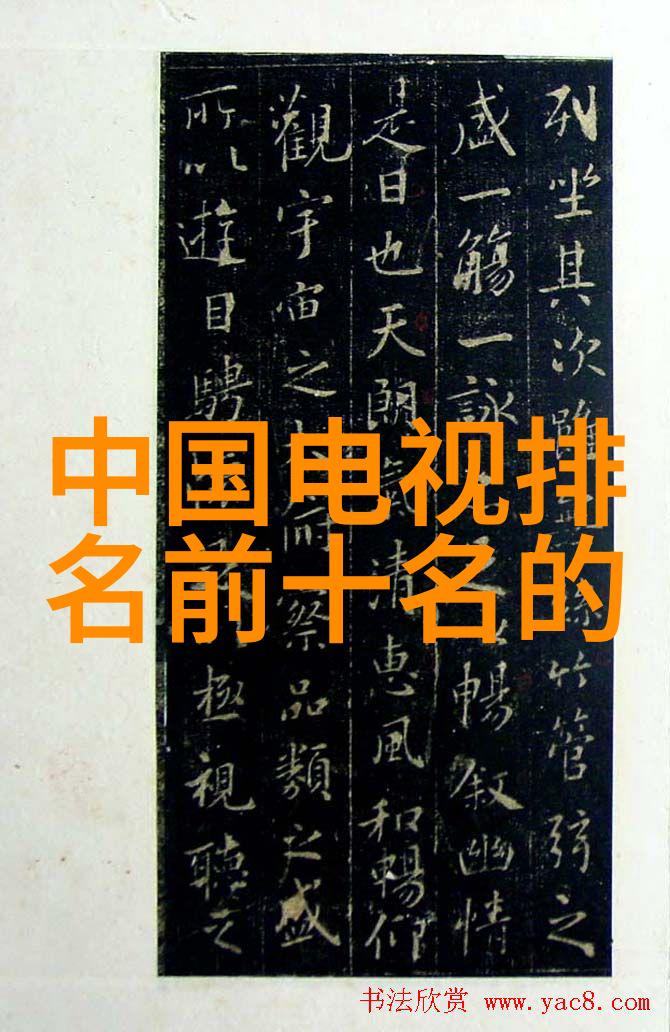 中国电视排
名前十名的
列坐其次雖絲竹管弦之
盛一觴一詠暢叙幽情
是日也天朗氣清惠風和暢仰
觀宇宙之俯察品類之盛
所以遊目騁極視聽之
书法欣赏 www.yac8.com